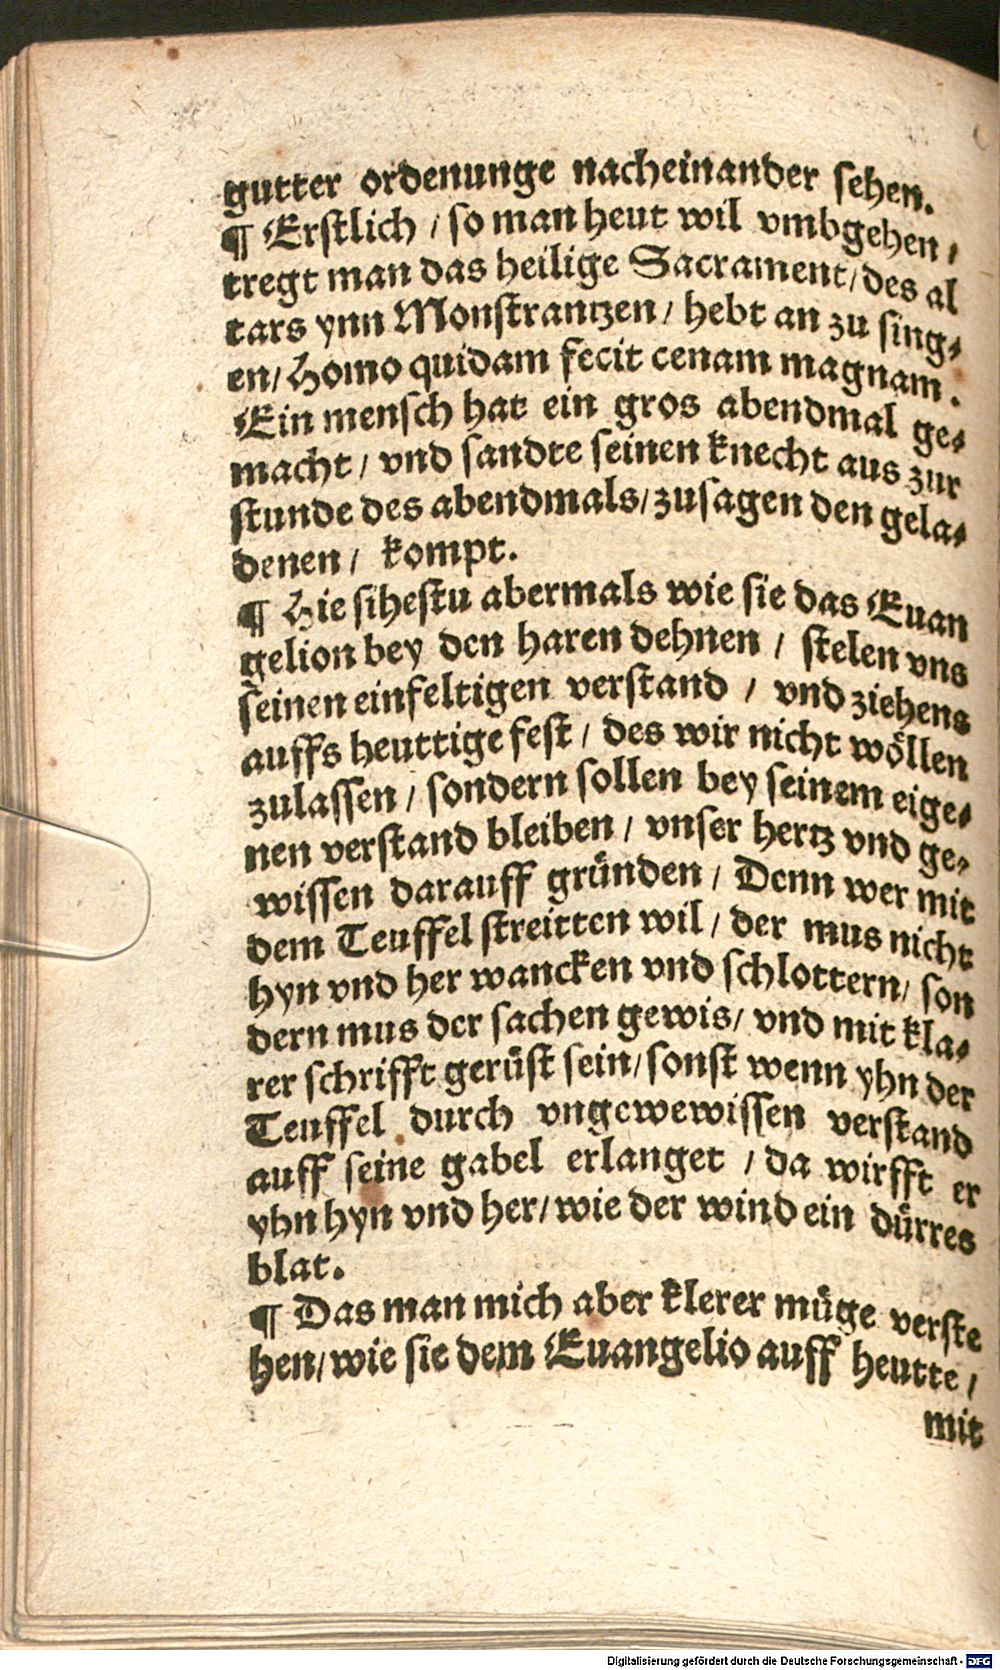 gutter ordenunge nacheinander sehen.
¶ Erstlich / so man heut wil vmbgehen /
tregt man das heilige Sacrament / des al
tars ynn Monstrantzen / hebt an zu sing⸗
en / Homo quidam fecit cenam magnam.
Ein mensch hat ein gros abendmal ge⸗
macht / vnd sandte seinen knecht aus zur
stunde des abendmals / zusagen den gela⸗
denen / kompt.
¶ Hie sihestu abermals wie sie das Euan
gelion bey den haren dehnen / stelen vns
seinen einfeltigen verstand / vnd ziehens
auffs heuttige fest / des wir nicht wöllen
zulassen / sondern sollen bey seinem eige⸗
nen verstand bleiben / vnser hertz vnd ge⸗
wissen darauff gründen / Denn wer mit
dem Teuffel streitten wil / der mus nicht
hyn vnd her wancken vnd schlottern / son
dern mus der sachen gewis / vnd mit kla⸗
rer schrifft gerüst sein / sonst wenn yhn der
Teuffel durch vngewewissen verstand
auff seine gabel erlanget / da wirfft er
yhn hyn vnd her / wie der wind ein dürres
blat.
¶ Das man mich aber klerer müge verste
hen / wie sie dem Euangelio auff heutte /
mit
Digitalisierung gefördert durch die Deutsche Forschungsgemeinschaft - DFG